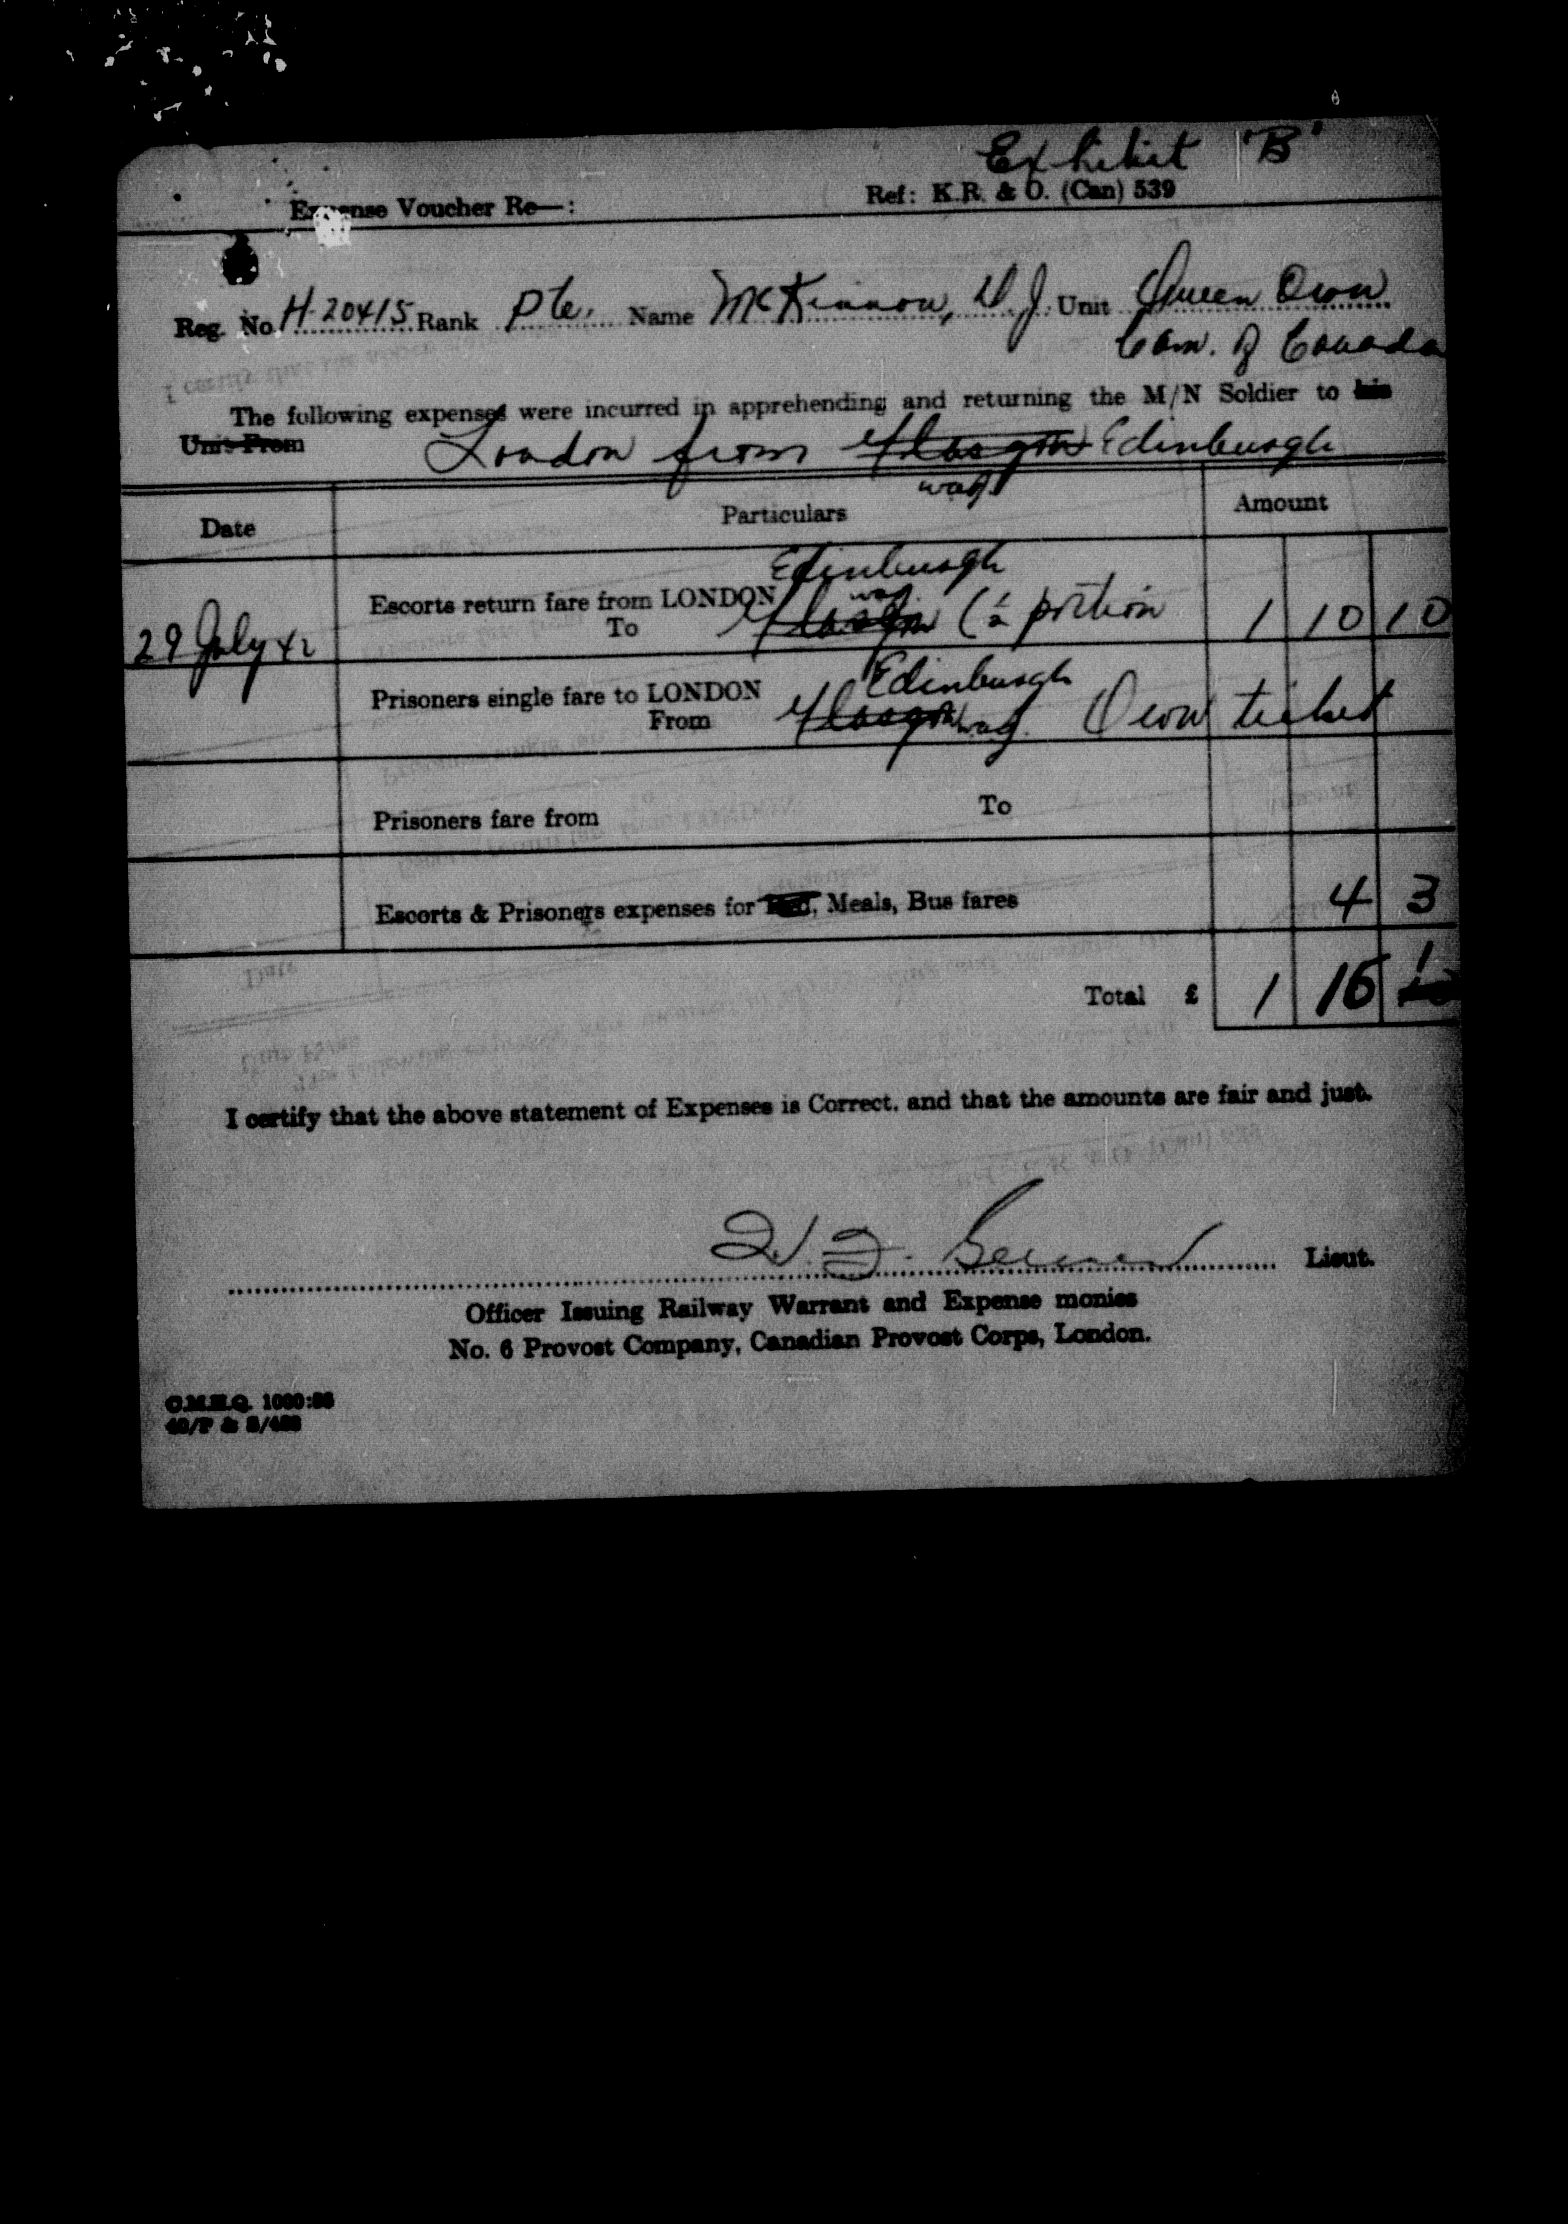 Exhibit 'B'
Expense Voucher Re—: Ref: K.R. & O. (Can) 539
Reg. No. H-20415 Rank Pte. Name McKinnon, D.J. Unit Queen Own
Cam. of Canada
The following expenses were incurred in apprehending and returning the M/N Soldier to his
Unit From London from Glasgow Edinburgh
Date Particulars Amount
Edinburgh
29 July 42 Escorts return fare from LONDON
To Glasgow (½ portion 1 10 10
Edinburgh
Prisoners single fare to LONDON
From Glasgow Own ticket
Prisoners fare from To
Escorts & Prisoners expenses for Bed, Meals, Bus fares 4 3
Total £ 1 15 1
I certify that the above statement of Expenses is Correct, and that the amounts are fair and just.
Lieut.
Officer Issuing Railway Warrant and Expense monies
No. 6 Provost Company, Canadian Provost Corps, London.
C.M.H.Q.